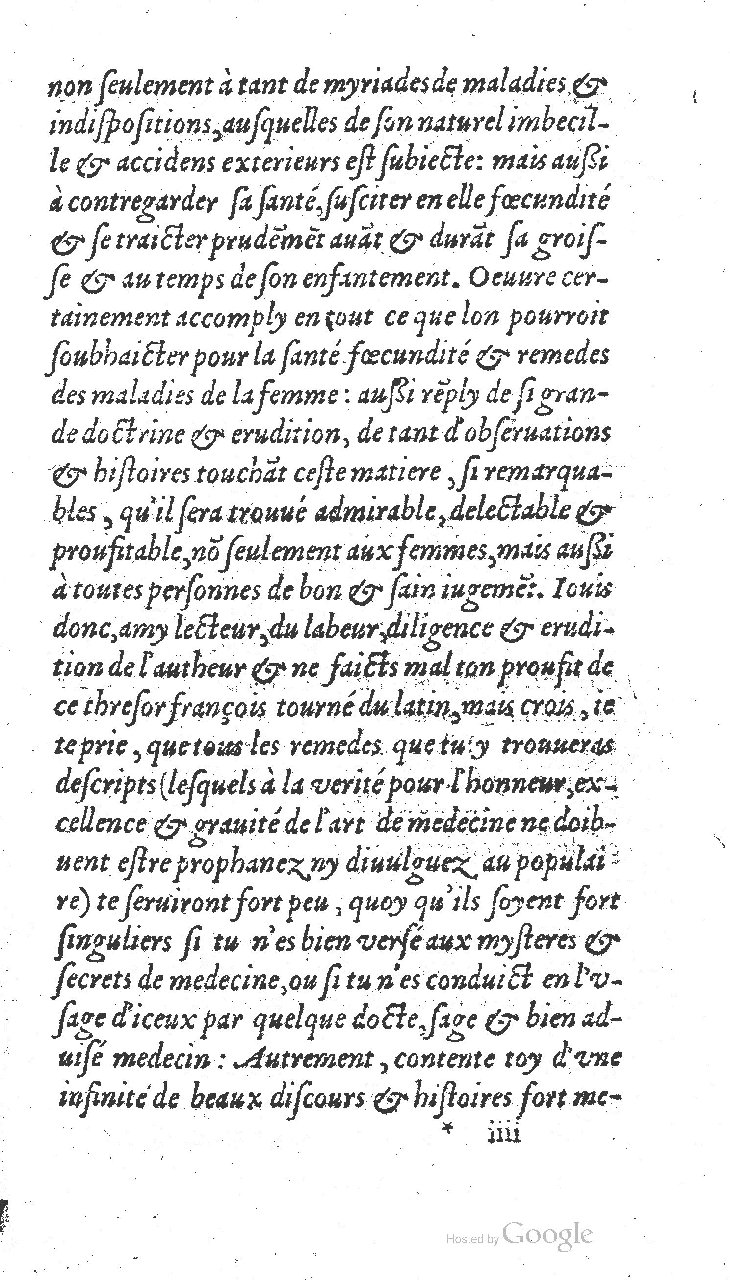 non ſeulement à tant de myriades de maladies &
indiſpoſitions, auſquelles de ſon naturel imbecil-
le & accidens exterieurs eſt ſubiecte: mais auſſi
à contregarder ſa ſanté, ſuſciter en elle fœcundité
& ſe traicter prudēmēt auāt & durāt ſa groiſ-
ſe & au temps de ſon enfantement. Oeuure cer-
tainement accomply en tout ce que lon pourroit
ſoubhaicter pour la ſanté fœcundité & remedes
des maladies de la femme : auſſi rēply de ſi gran-
de doctrine & erudition, de tant d'obſeruations
& hiſtoires touchāt ceſte matiere, ſi remarqua-
bles, qu'il ſera trouué admirable, delectable &
proufitable, nō ſeulement aux femmes, mais auſſi
à toutes perſonnes de bon & ſain iugemēt. Iouis
donc, amy lecteur, du labeur, diligence & erudi-
tion de l'autheur & ne faicts mal ton proufit de
ce threſor françois tourné du latin, mais crois, ie
te prie, que tous les remedes que tu y trouueras
deſcripts (leſquels à la verité pour l'honneur, ex-
cellence & grauité de l'art de medecine ne doib-
uent eſtre prophanez ny diuulguez au populai-
re) te ſeruiront fort peu, quoy qu'ils ſoyent fort
ſinguliers ſi tu n'es bien verſé aux myſteres &
ſecrets de medecine, ou ſi tu n'es conduict en l'v-
ſage d'iceux par quelque docte, ſage & bien ad-
uiſé medecin : Autrement, contente toy d'vne
infinité de beaux diſcours & hiſtoires fort me-
* iiii
Hosted by Google